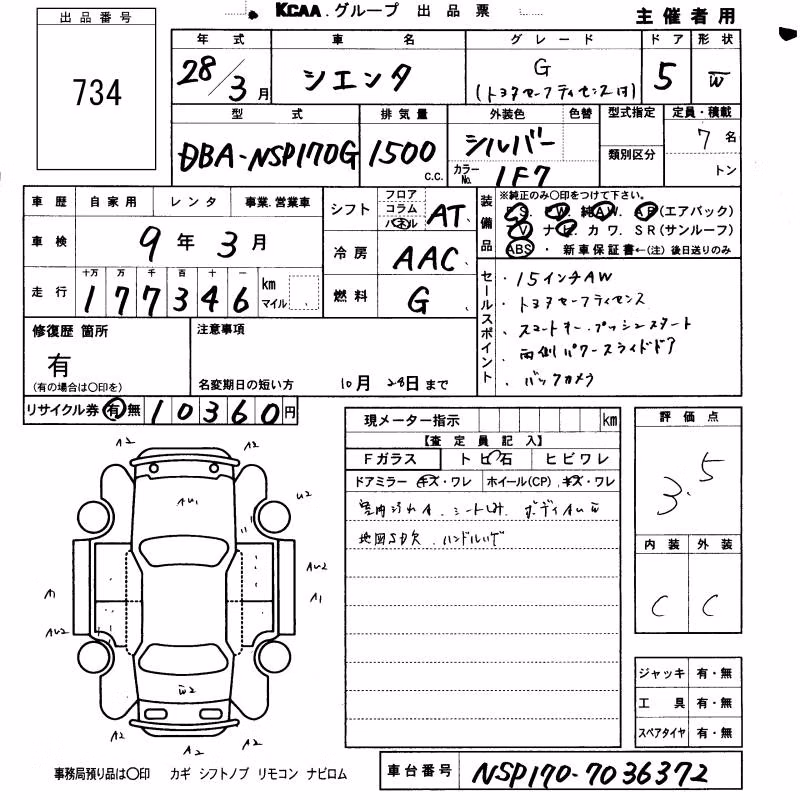 KCAA.グループ 出品票
主催者用
出品番号
734
年式 車名 グレード ドア 形状
28/3月 シエンタ G 5 W
(トヨタセーフティセンス付)
型式 排気量 外装色 色替 型式指定 定員・積載
DBA-NSP170G 1500 c.c. シルバー 類別区分 7名
カラーNo. 1F7 トン
車歴 自家用 レンタ 事業.営業車
車検 9年3月
走行 十万 万 千 百 十 一
177346 km マイル
シフト フロア コラム パネル AT
冷房 AAC
燃料 G
装備品 ※純正のみ〇印をつけて下さい。
P.S. P.W. 純AW. AB(エアバック)
TV ナビ. カワ. SR(サンルーフ)
ABS ・ 新車保証書←(注)後日送りのみ
セールスポイント
・15インチAW
・トヨタセーフティセンス
・スマートキー.プッシュスタート
・両側パワースライドドア
・バックカメラ
修復歴 箇所
有
(有の場合は〇印を)
注意事項
名変期日の短い方 10月28日まで
リサイクル券 有 無 10360円
現メーター指示 km
【査定員記入】
Fガラス トビ石 ヒビワレ
ドアミラー キズ・ワレ ホイール(CP).キズ・ワレ
室内ヨゴレA.シートLみ.ボディAU
地図SD欠.ハンドルハゲ
評価点
3.5
内装 外装
C C
ジャッキ 有・無
工具 有・無
スペアタイヤ 有・無
A2 A2
AU1 U2
AU2
A1 A1
AU2
W2
A2 A2 A2
事務局預り品は〇印 カギ シフトノブ リモコン ナビロム
車台番号 NSP170-7036372